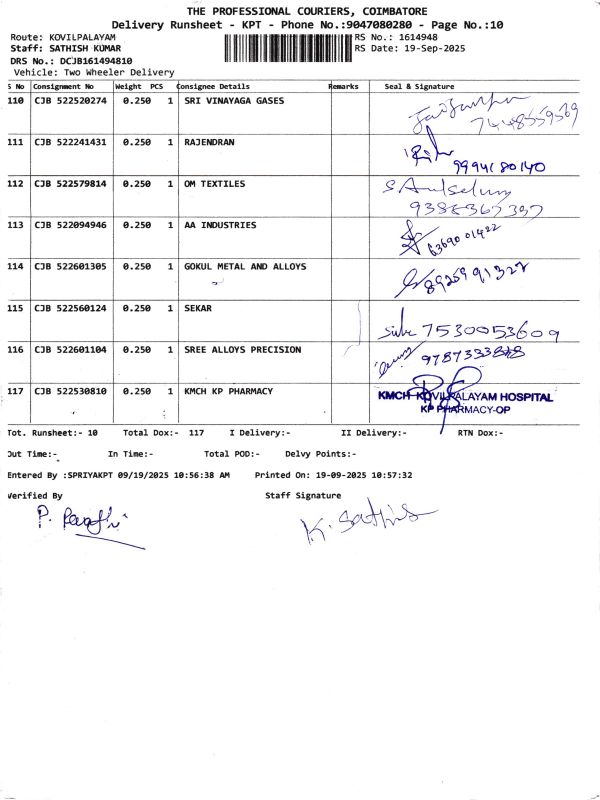 THE PROFESSIONAL COURIERS, COIMBATORE
Delivery Runsheet - KPT - Phone No.:9047080280 - Page No.:10
Route: KOVILPALAYAM RS No.: 1614948
Staff: SATHISH KUMAR RS Date: 19-Sep-2025
DRS No.: DCJB161494810
Vehicle: Two Wheeler Delivery
S No Consignment No Weight PCS Consignee Details Remarks Seal & Signature
110 CJB 522520274 0.250 1 SRI VINAYAGA GASES
111 CJB 522241431 0.250 1 RAJENDRAN
9994180140
112 CJB 522579814 0.250 1 OM TEXTILES
113 CJB 522094946 0.250 1 AA INDUSTRIES
63690 01422
114 CJB 522601305 0.250 1 GOKUL METAL AND ALLOYS
8925991322
115 CJB 522560124 0.250 1 SEKAR
7530053609
116 CJB 522601104 0.250 1 SREE ALLOYS PRECISION
117 CJB 522530810 0.250 1 KMCH KP PHARMACY
KMCH KOVILPALAYAM HOSPITAL
KP PHARMACY-OP
Tot. Runsheet:- 10 Total Dox:- 117 I Delivery:- II Delivery:- RTN Dox:-
Out Time:- In Time:- Total POD:- Delvy Points:-
Entered By :SPRIYAKPT 09/19/2025 10:56:38 AM Printed On: 19-09-2025 10:57:32
Verified By Staff Signature
K. Sathish